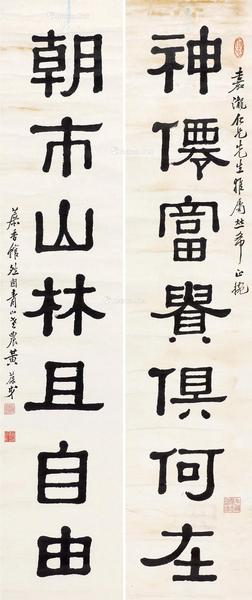 神僊富貴俱何在
嘉瀧仁兄先生雅屬並希正
朝市山林且自由
蔗香館青山老農黃葆戉